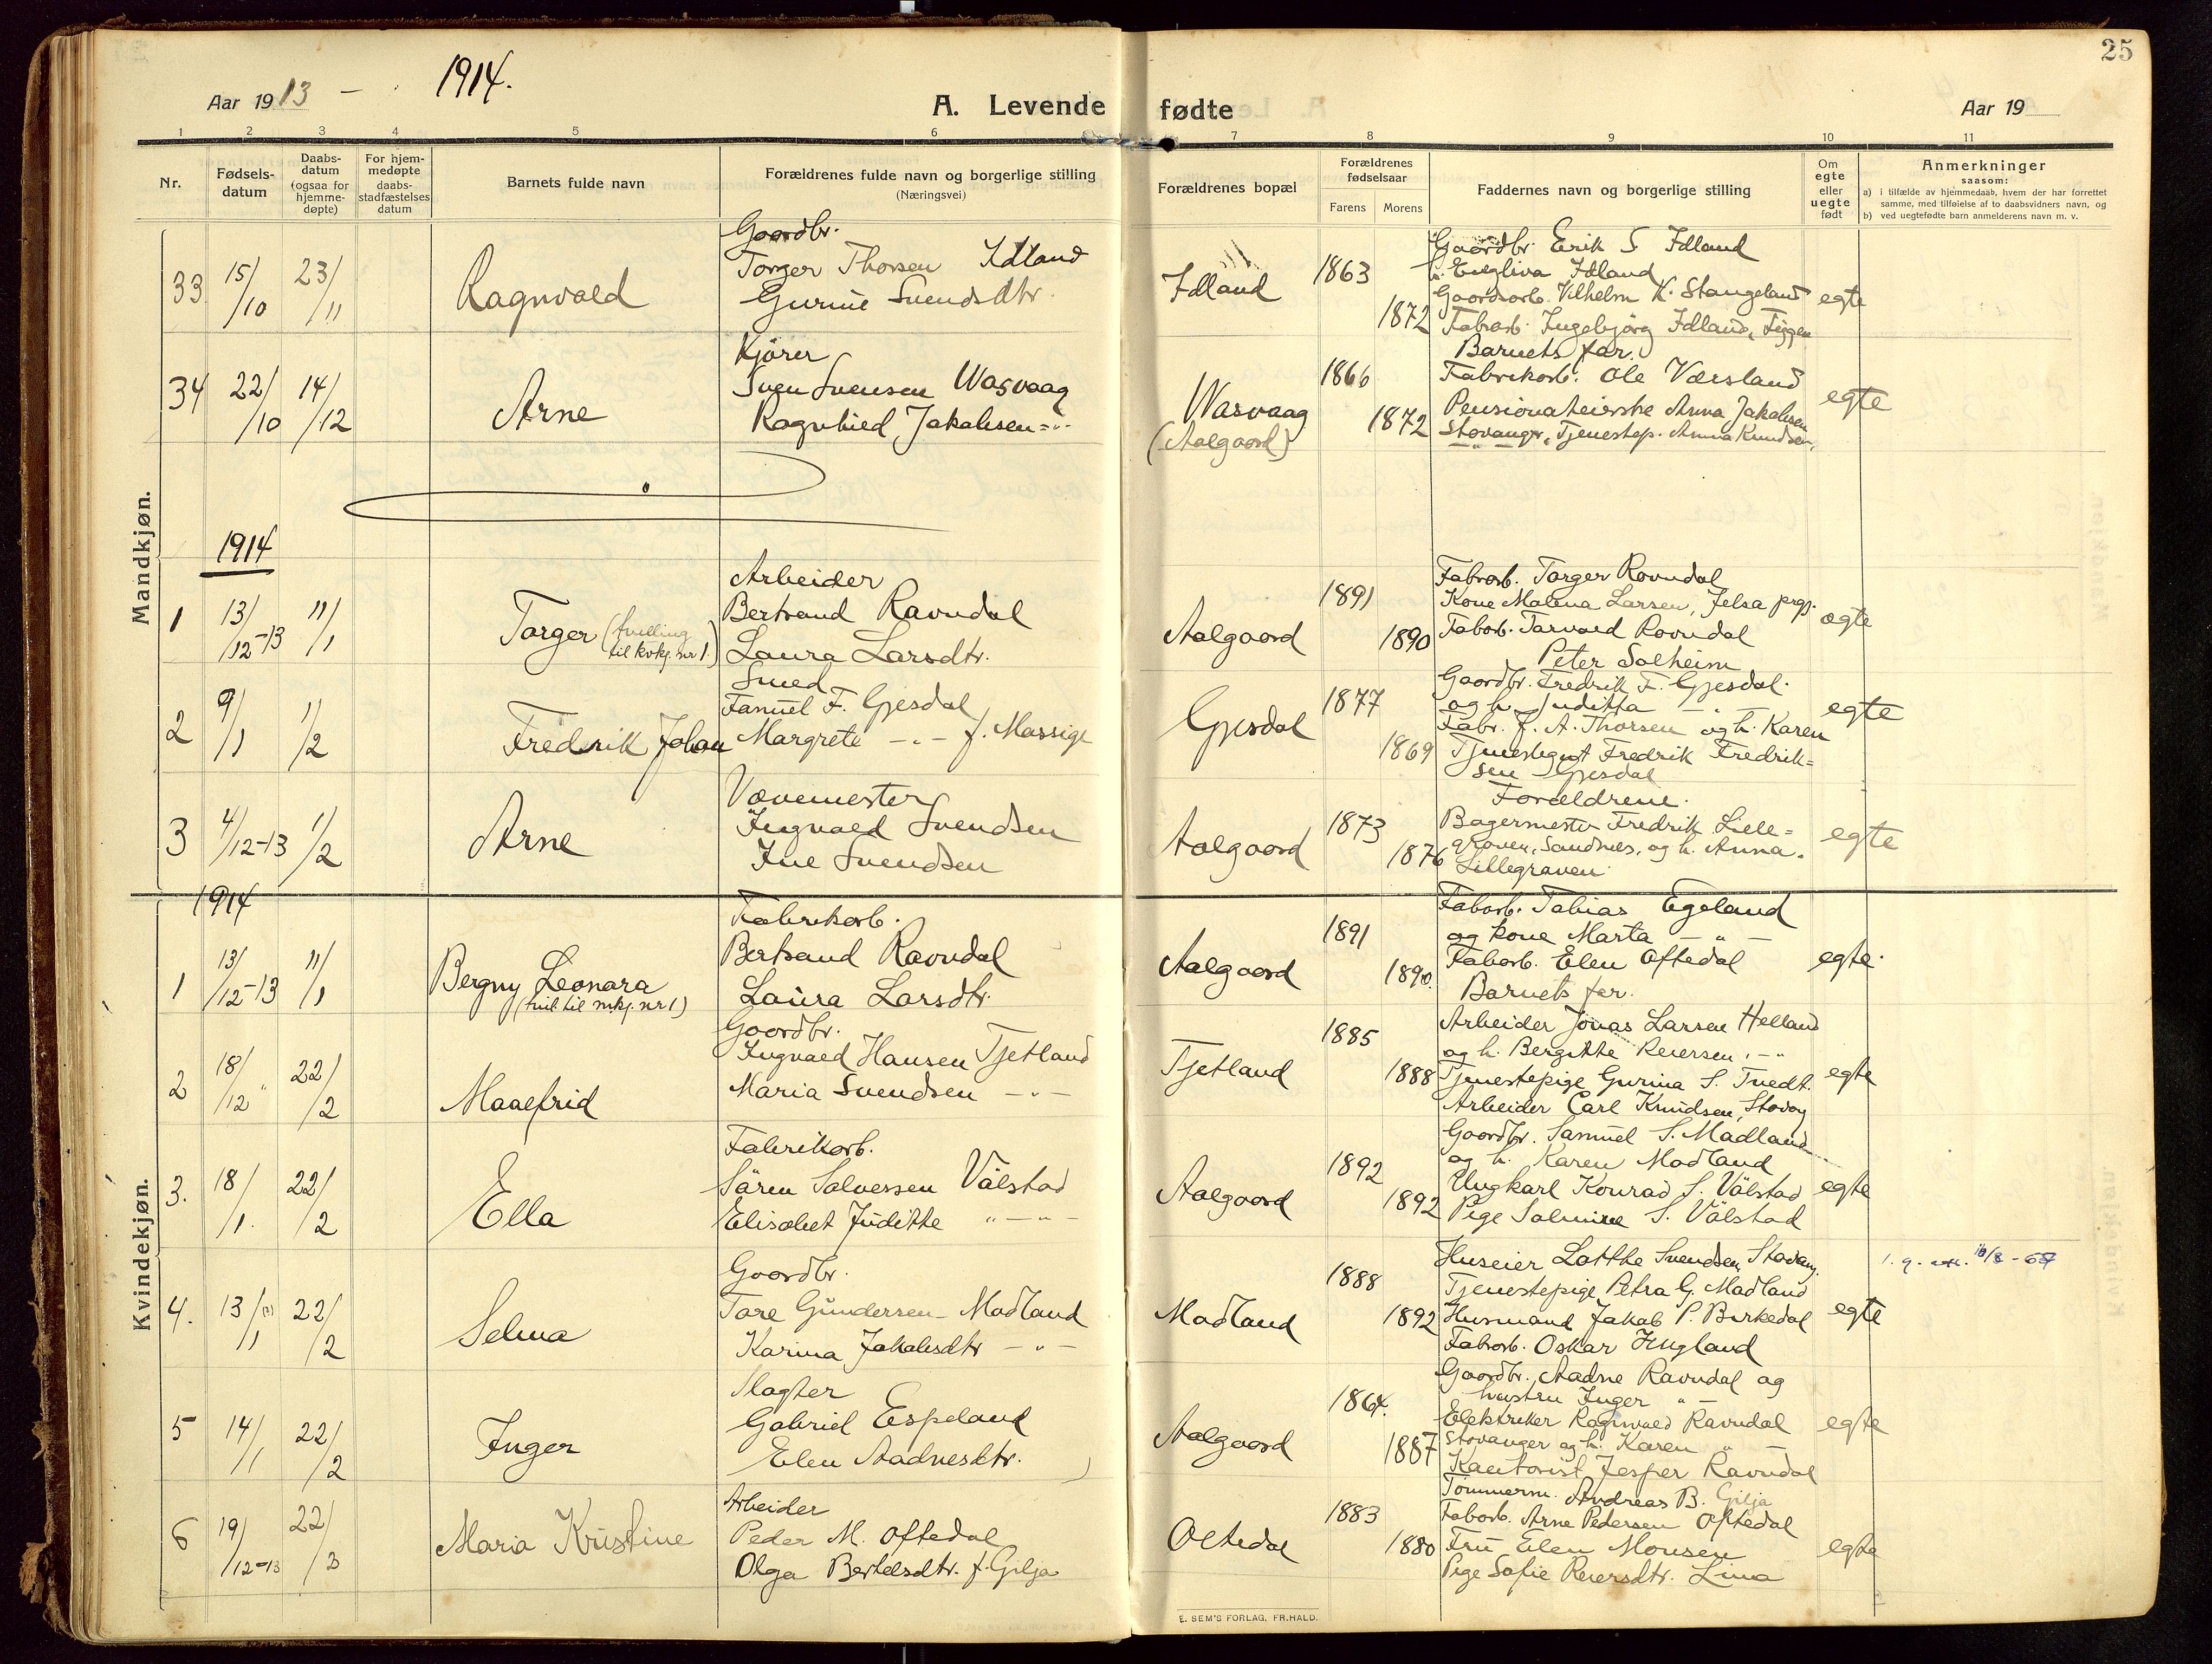 25
Aar 1913 - 1914.
A. Levende fødte
Aar 19
1 2 3 4 5 6 7 8 9 10 11
Nr.
Fødsels-
datum
Daabs-
datum
(ogsaa for
hjemme-
døpte)
For hjem-
medøpte
daabs-
stadfæstelses
datum
Barnets fulde navn
Forældrenes fulde navn og borgerlige stilling
(Næringsvei)
Forældrenes bopæl
Forældrenes
fødselsaar
Farens Morens
Faddernes navn og borgerlige stilling
Om
egte
eller
uegte
født
Anmerkninger
saasom:
a) i tilfælde av hjemmedaab, hvem der har forrettet
samme, med tilføielse af to daabsvidners navn, og
b) ved uegtefødte barn anmelderens navn m. v.
Mandkjøn.
33 15/10 23/11 Ragnvald
Gaardbr.
Torger Thorsen Idland
Gurine Svendsdtr.
Idland 1863 1872
Gaardbr. Erik S Idland
Engliva Idland
Gaardsarb. Vilhelm K. Stangeland
Fabrarb. Ingebjørg Idland, Figgen
egte
34 22/10 14/12 Arne
Kjører
Sven Svensen Wasvaag
Ragnhild Jakobsen -"-
Wasvaag
(Aalgaard)
1866 1872
Barnets far.
Fabrikarb. Ole Værsland
Pensionateierske Anna Jakobsen
Stavanger, Tjenestep. Anna Knudsen,
egte
1914
1 13/12-13 11/1 Torger (tvilling
til kvkj. nr 1.)
Arbeider
Bertrand Ravndal
Laura Larsdtr.
Aalgaard 1891 1890
Fabrarb. Torger Ravndal
Kone Malena Larsen, Jelsa prgj.
Fabarb. Tarvald Ravndal
Peter Solheim
egte
2 9/1 1/2 Fredrik Johan
Smed
Fanuel F. Gjesdal
Margrete -"- f. Massige
Gjesdal 1877 1869
Gaardbr. Fredrik F. Gjesdal.
og h. Juditha - " -
Fabr. f. A. Thorsen og h. Karen
Tjenestegut Fredrik Fredrik=
sen Gjesdal
egte
3 4/12-13 1/2 Arne
Vævemester
Ingvald Svendsen
Ine Svendsen
Aalgaard 1873 1876
Forældrene.
Bagermester Fredrik Lille=
graven, Sandnes, og h. Anna.
Lillegraven.
egte
Kvindekjøn.
1914
1 13/12-13 11/1 Bergny Leonara
(tvil. til mkj. nr 1)
Fabrikarb.
Bertrand Ravndal
Laura Larsdtr.
Aalgaard 1891 1890.
Fabarb. Tobias Egeland
og kone Marta - " -
Fabarb. Elen Oftedal
Barnets far.
egte.
2 18/12 " 22/2 Maalfrid
Gaardbr.
Ingvald Hansen Tjetland
Maria Svendsen - " -
Tjetland 1885 1888
Arbeider Jonas Larsen Helland
og h. Bergitte Reiersen, - "
Tjenestepige Gurina S. Tvedt.
Arbeider Carl Knudsen, Stavang
egte
3. 18/1. 22/2 Ella
Fabrikarb.
Sören Salvessen Välstad
Elisabet Juditte " - " -
Aalgaard 1892 1892
Gaardbr. Samuel S. Madland
og h. Karen Madland
Ungkarl Konrad S. Välstad
Pige Salmine S. Välstad
egte
4. 13/1 22/2 Selma
Gaardbr.
Tore Gundersen Madland
Karina Jakobsdtr - " -
Madland 1888 1892
Huseier Lotthe Svendsen, Stavang.
Tjenestepige Petra G. Madland
Husmand Jakob P. Birkedal
Fabrarb. Oskar Hugland
egte
5 14/1 22/2 Inger
Slagter
Gabriel Espeland
Elen Aadnesdtr.
Aalgaard 1864. 1887
Gaardbr. Aadne Ravndal og
hustru Inger " -
Elektriker Ragnvald Ravndal
Stavanger og h. Karen " -
Kantorist Jesper Ravndal
egte
6 19/12-13 22/3 Maria Kristine
Arbeider
Peder M. Oftedal
Olga Bertelsdtr. f. Gilja
Oltedal 1883 1880
Tömmerm. Andreas B. Gilja
Fabarb. Arne Pedersen Oftedal
Fru Elen Monsen
Pige Sofie Reiersdtr. Lima
egte
E. SEM'S FORLAG, FR.HALD.